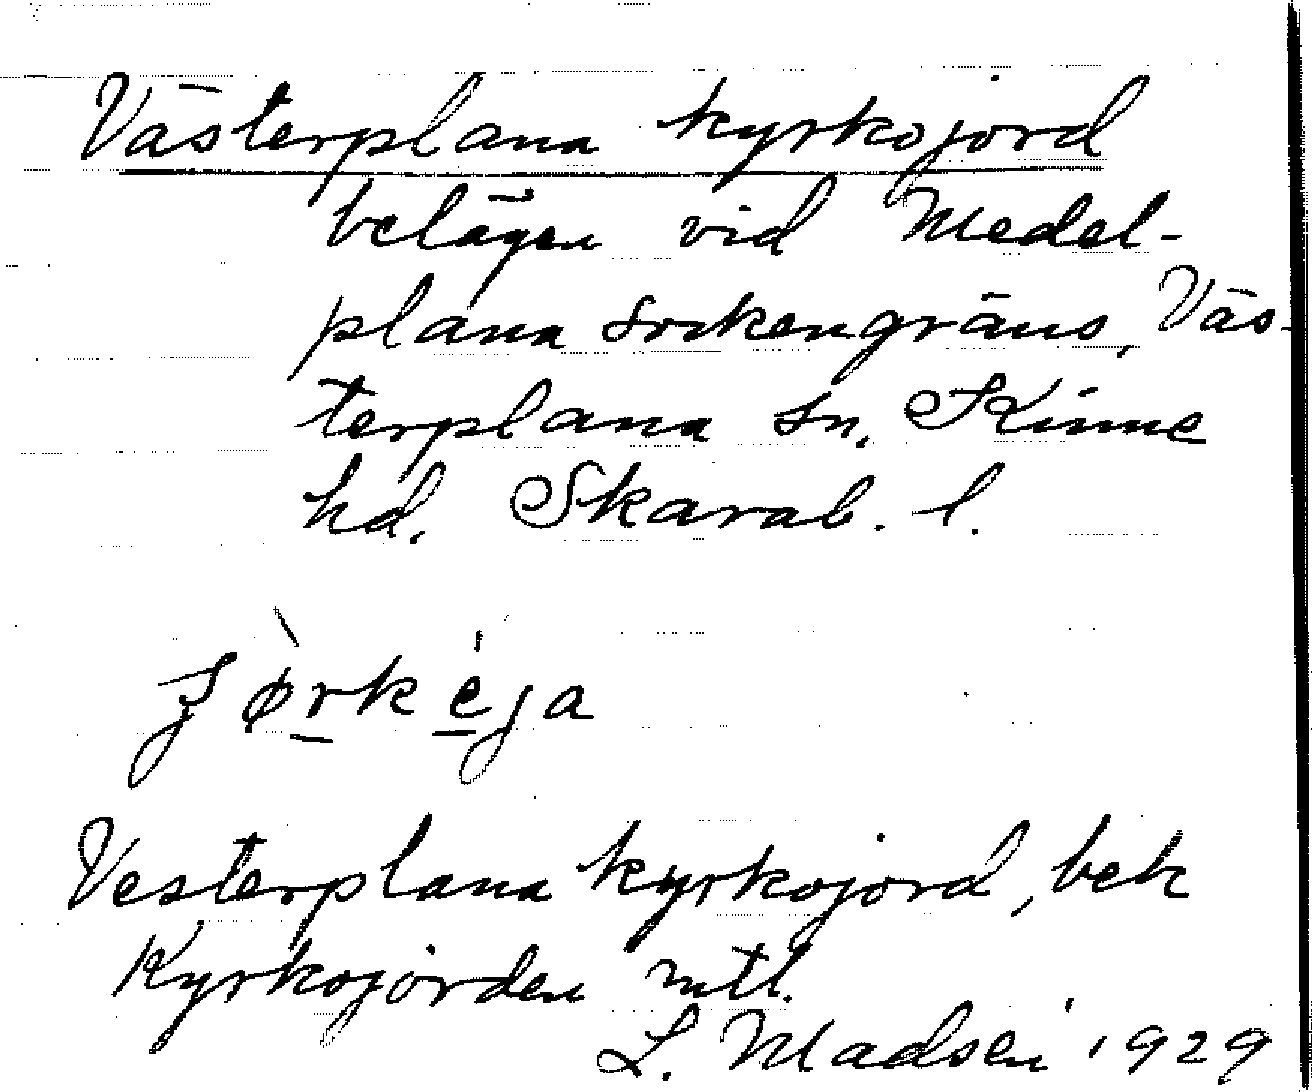 Västerplana kyrkojord
belägen vid Medel-
plana sockengräns, Väs-
terplana sn, Kinne
hd. Skarab. l.
kyrkojord, bek
Vesterplana kyrkojord, bek
Kyrkojorden mtl.
L. Madsen 1929